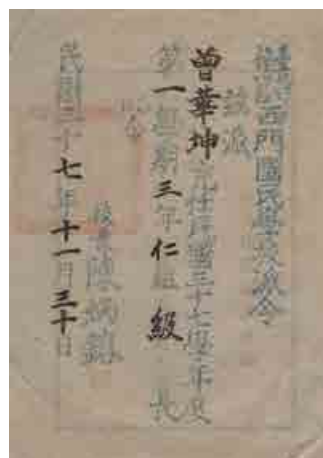 西門國民學校派令
茲派
曾華坤充任民國三十七學年度
第一學期三年仁組級長
此令
校長陳炳鎔
民國三十七年十一月三十日